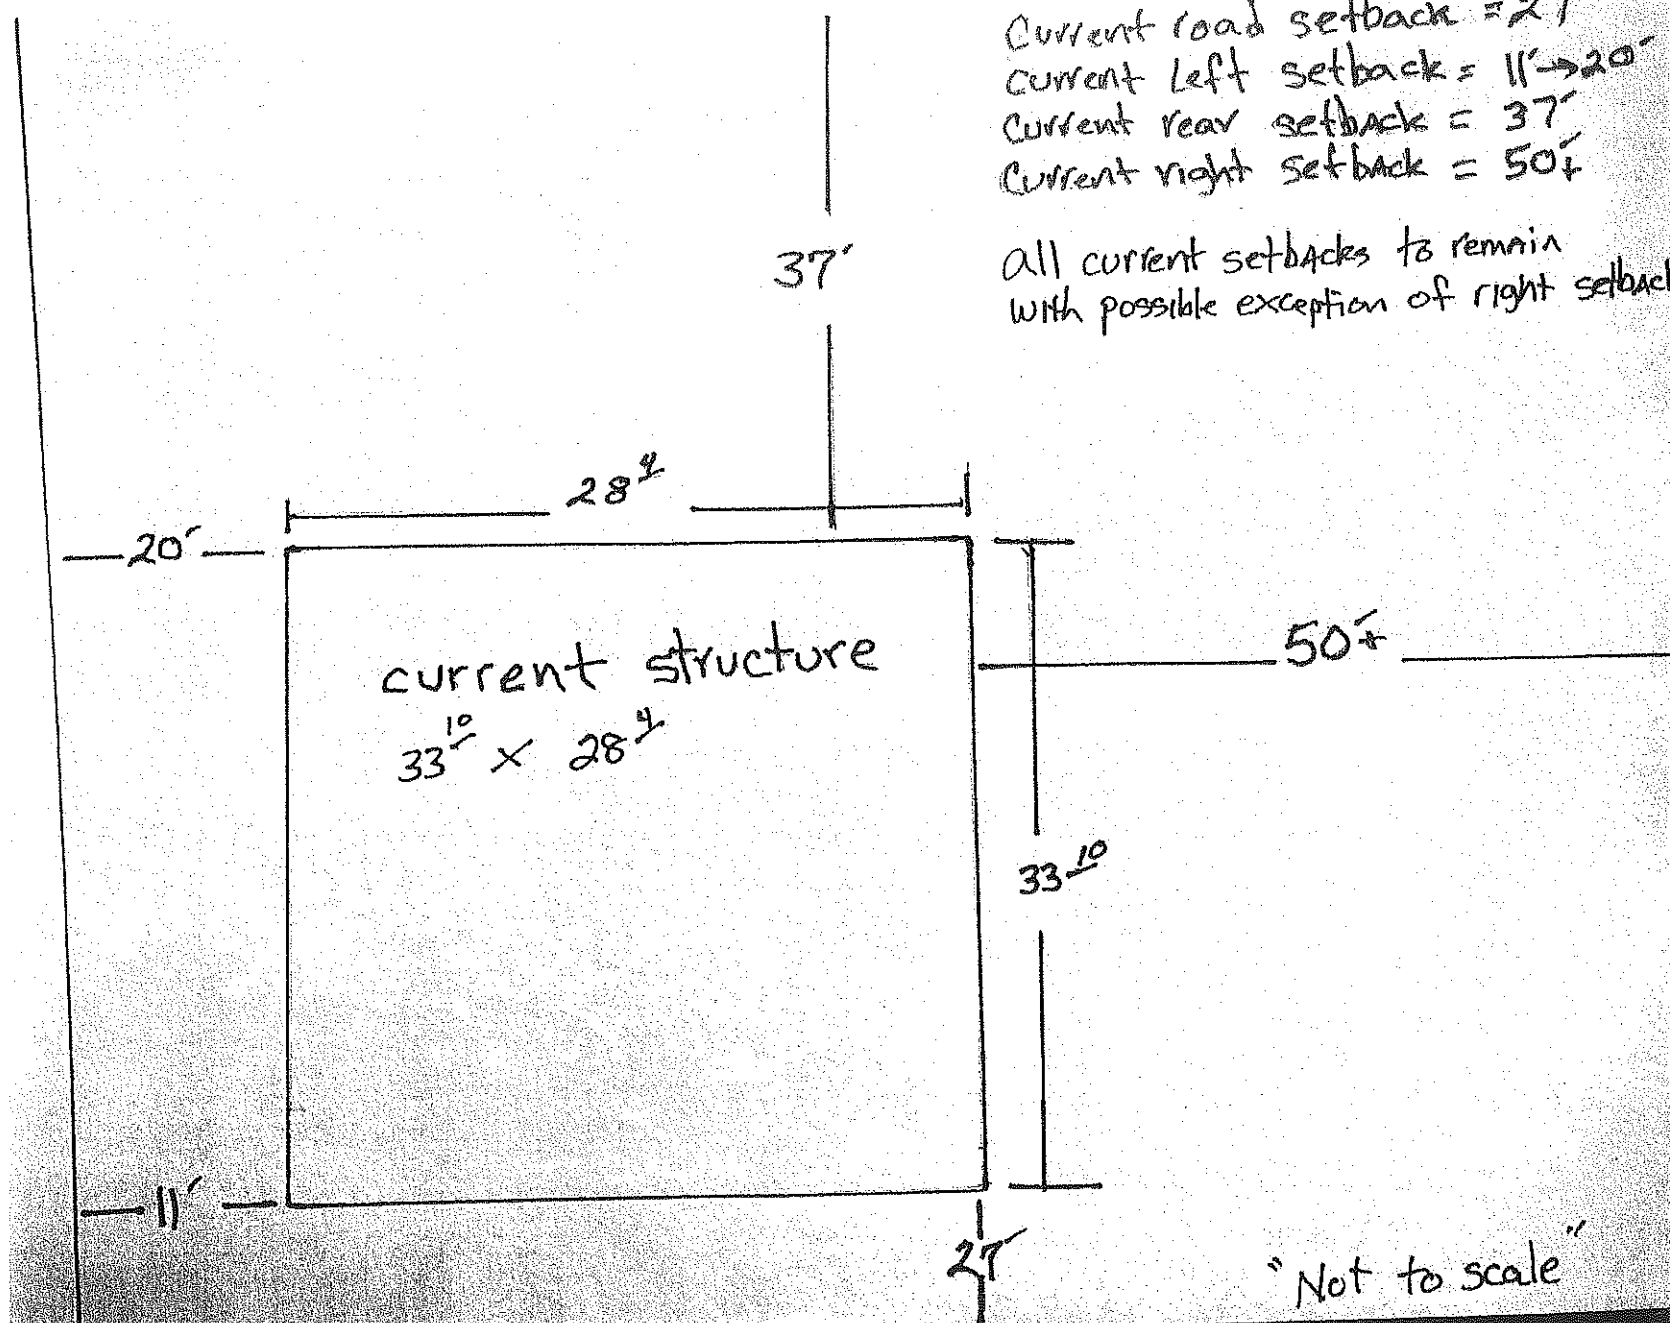 Current road setback = 27'
Current Left setback = 11'→20'
Current rear setback = 37'
Current right setback = 50'+
All current setbacks to remain
with possible exception of right setback
37'
28' 4
20'
current structure
33' 10 x 28' 4
50'+
33' 10
11'
27'
"Not to scale"